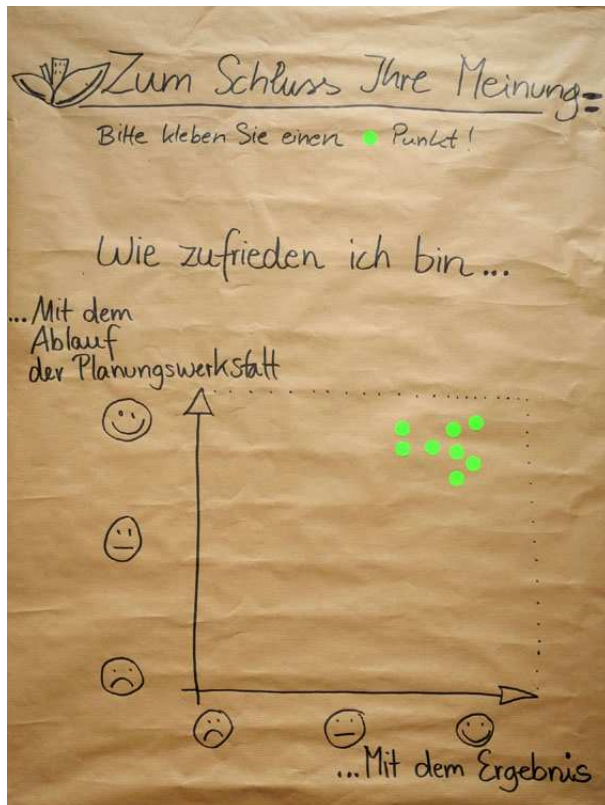 Zum Schluss Ihre Meinung:
Bitte kleben Sie einen Punkt!
Wie zufrieden ich bin...
...Mit dem
Ablauf
der Planungswerkstatt
...Mit dem Ergebnis